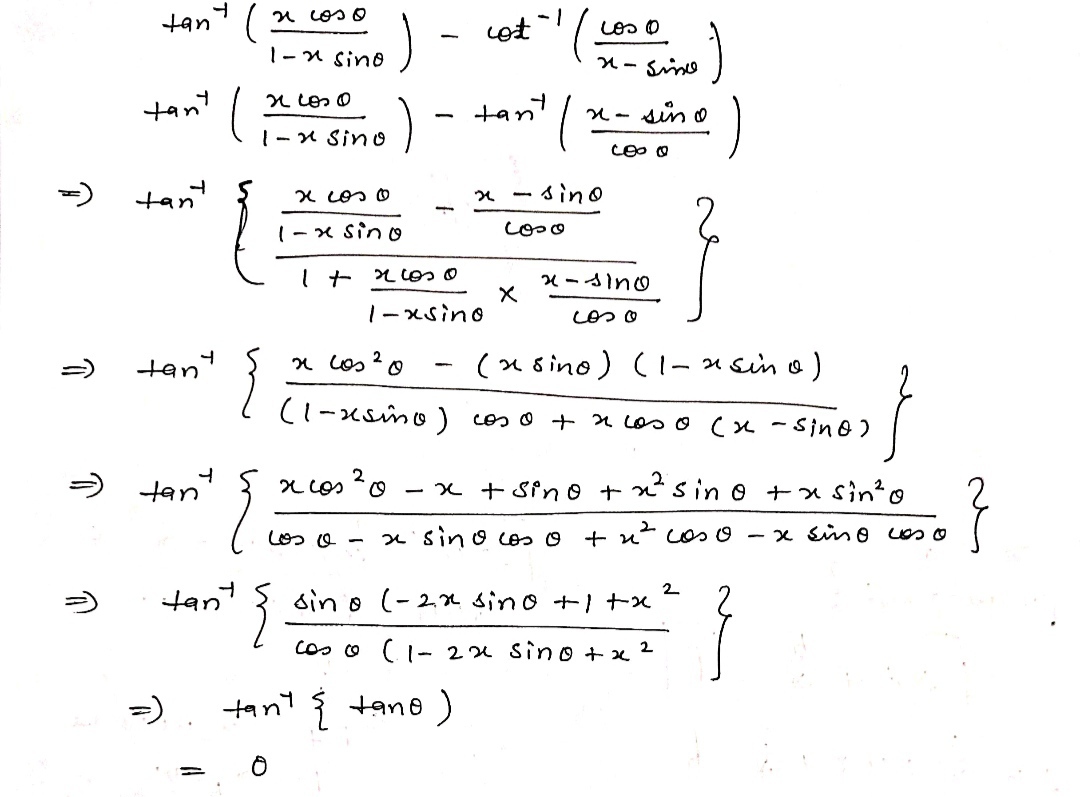 tan⁻¹ ( x cosθ / 1 - x sinθ ) - cot⁻¹ ( cosθ / x - sinθ )
tan⁻¹ ( x cosθ / 1 - x sinθ ) - tan⁻¹ ( x - sinθ / cosθ )
⇒ tan⁻¹ { x cosθ / 1 - x sinθ - x - sinθ / cosθ / 1 + x cosθ / 1 - x sinθ × x - sinθ / cosθ }
⇒ tan⁻¹ { x cos²θ - (x sinθ) (1 - x sinθ) / (1 - x sinθ) cosθ + x cosθ (x - sinθ) }
⇒ tan⁻¹ { x cos²θ - x + sinθ + x² sinθ + x sin²θ / cosθ - x sinθ cosθ + x² cosθ - x sinθ cosθ }
⇒ tan⁻¹ { sinθ (-2x sinθ + 1 + x² / cosθ (1 - 2x sinθ + x² }
⇒ tan⁻¹ { tanθ )
= θ